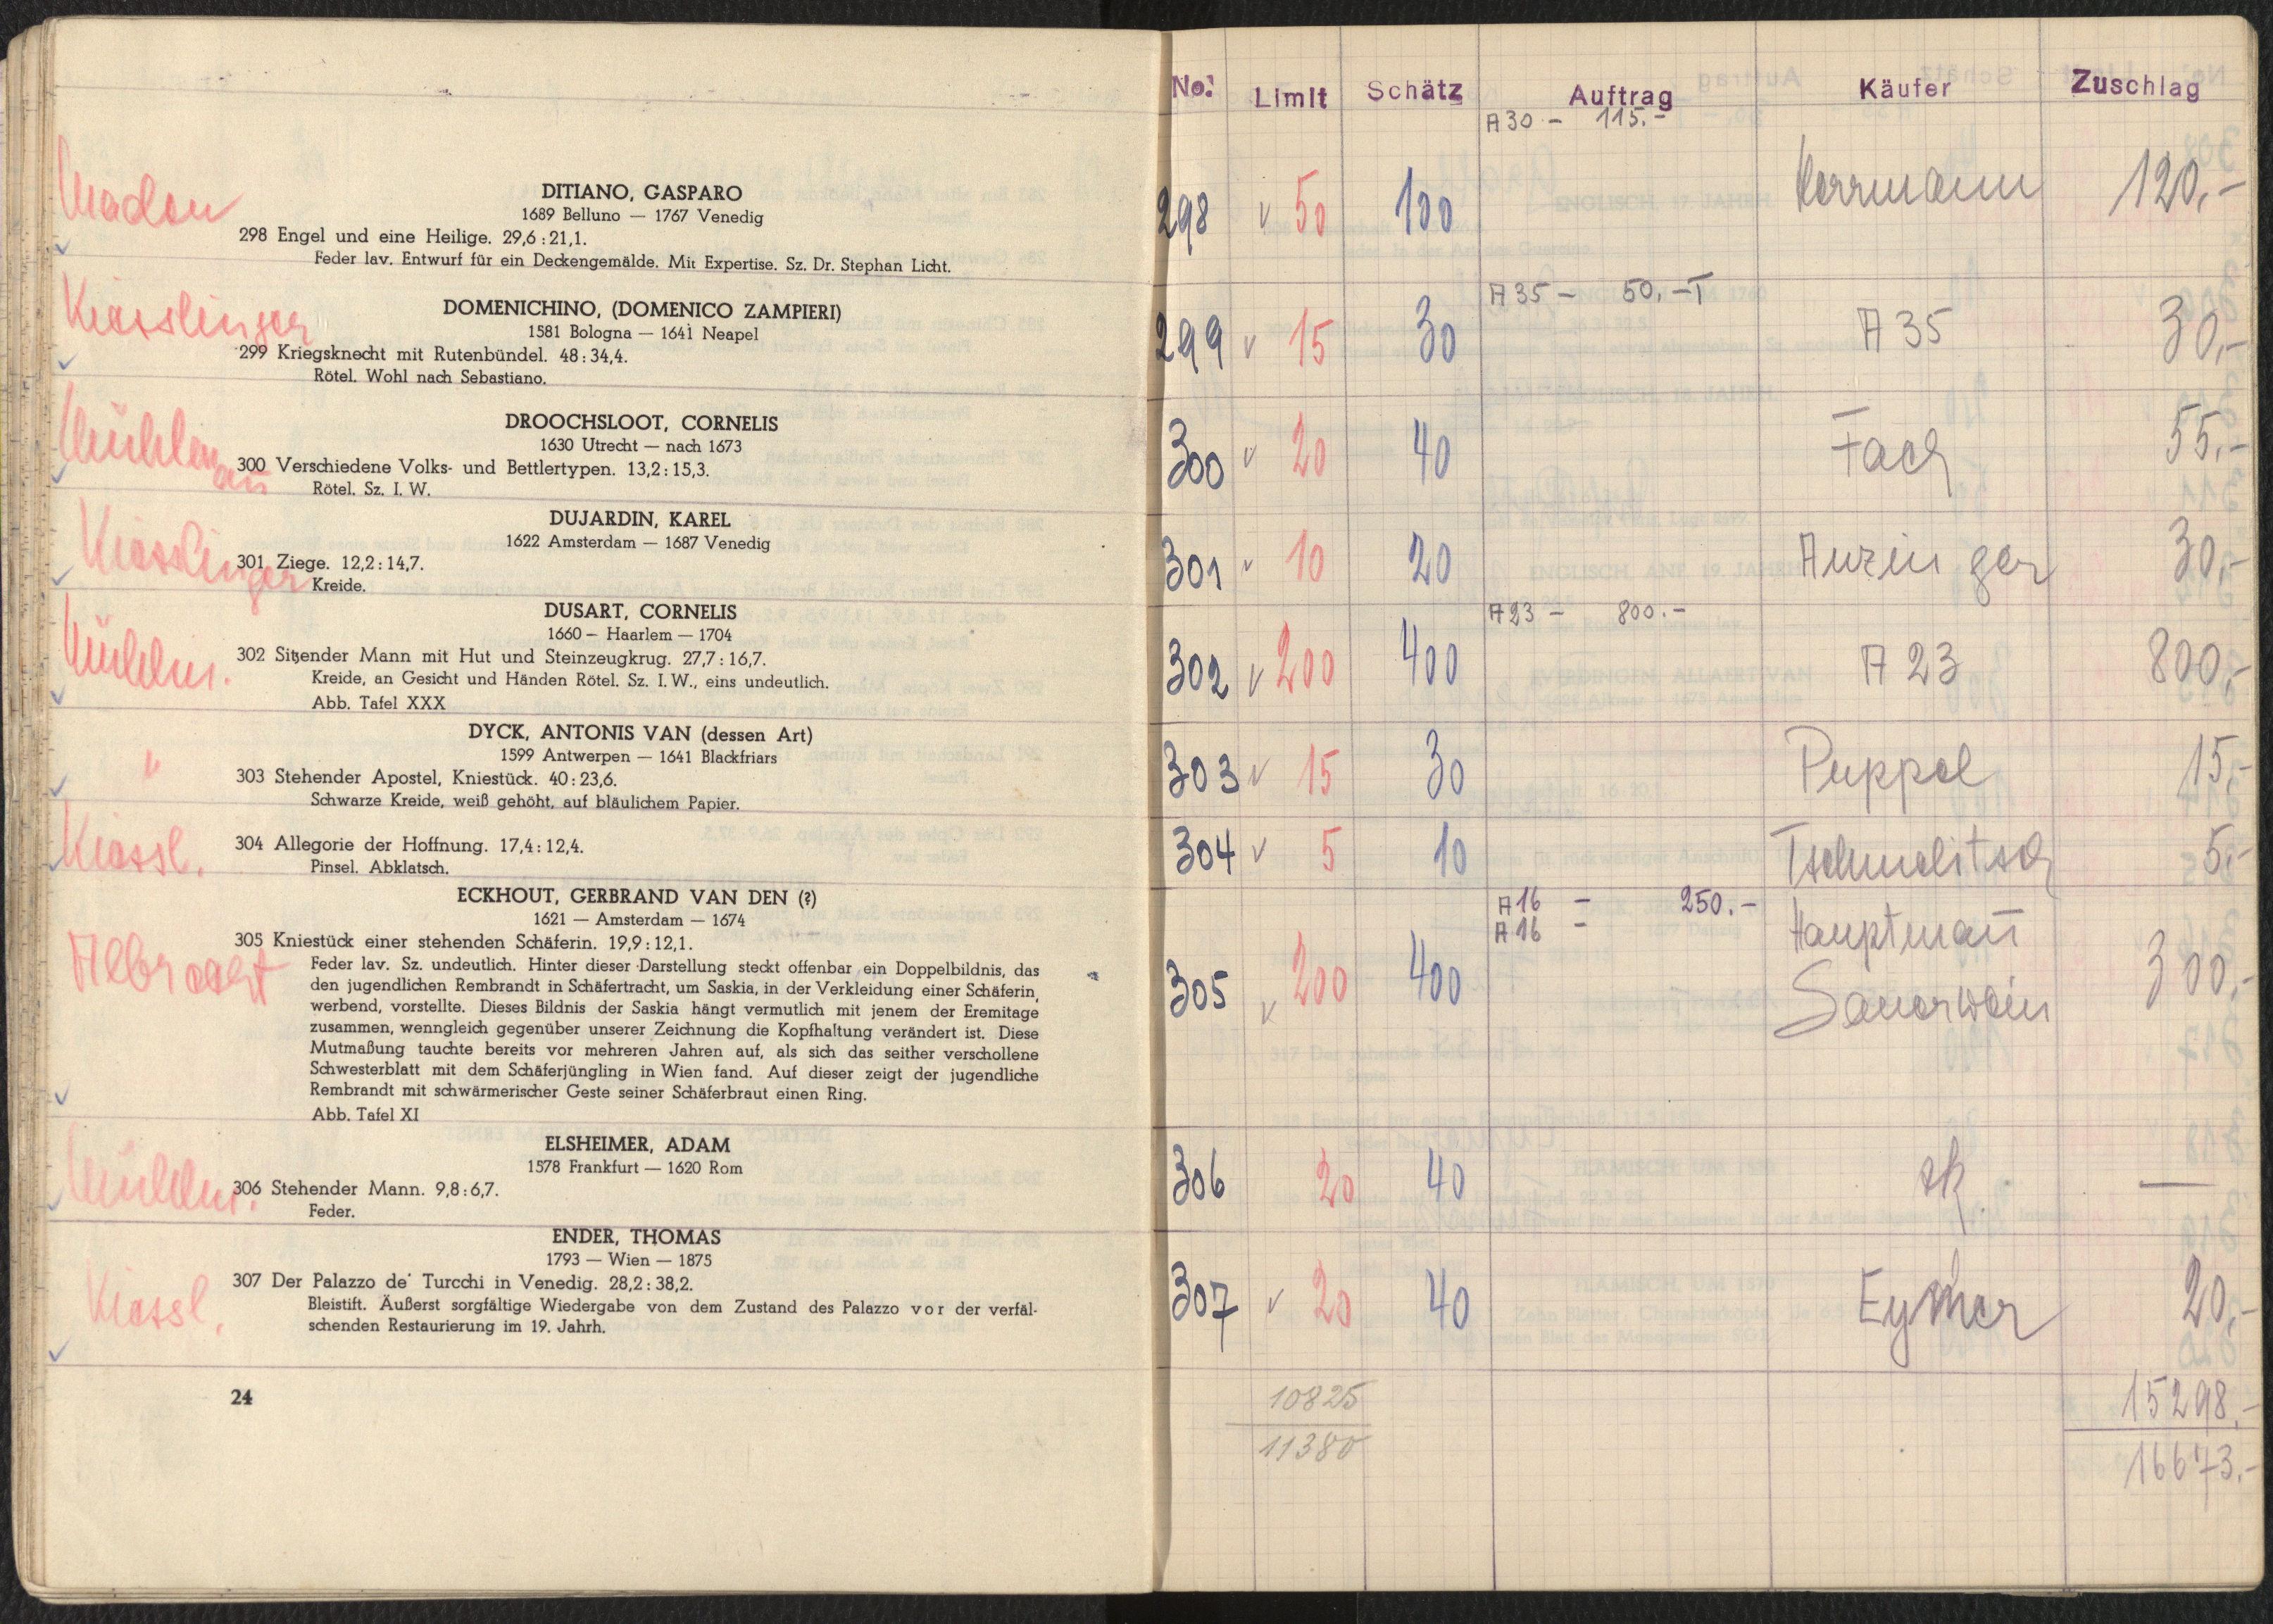 DITIANO, GASPARO
1689 Belluno — 1767 Venedig
298 Engel und eine Heilige. 29,6 : 21,1.
Feder lav. Entwurf für ein Deckengemälde. Mit Expertise. Sz. Dr. Stephan Licht.
Kiesslinger
DOMENICHINO, (DOMENICO ZAMPIERI)
1581 Bologna — 1641 Neapel
299 Kriegsknecht mit Rutenbündel. 48 : 34,4.
Rötel. Wohl nach Sebastiano.
DROOCHSLOOT, CORNELIS
1630 Utrecht — nach 1673
300 Verschiedene Volks- und Bettlertypen. 13,2 : 15,3.
Rötel. Sz. I. W.
Kiesslinger
DUJARDIN, KAREL
1622 Amsterdam — 1687 Venedig
301 Ziege. 12,2 : 14,7.
Kreide.
DUSART, CORNELIS
1660 — Haarlem — 1704
302 Sitzender Mann mit Hut und Steinzeugkrug. 27,7 : 16,7.
Kreide, an Gesicht und Händen Rötel. Sz. I. W., eins undeutlich.
Abb. Tafel XXX
DYCK, ANTONIS VAN (dessen Art)
1599 Antwerpen — 1641 Blackfriars
303 Stehender Apostel, Kniestück. 40 : 23,6.
Schwarze Kreide, weiß gehöht, auf bläulichem Papier.
Kiessl.
304 Allegorie der Hoffnung. 17,4 : 12,4.
Pinsel. Abklatsch.
ECKHOUT, GERBRAND VAN DEN (?)
1621 — Amsterdam — 1674
Albrecht
305 Kniestück einer stehenden Schäferin. 19,9 : 12,1.
Feder lav. Sz. undeutlich. Hinter dieser Darstellung steckt offenbar ein Doppelbildnis, das
den jugendlichen Rembrandt in Schäfertracht, um Saskia, in der Verkleidung einer Schäferin,
werbend, vorstellte. Dieses Bildnis der Saskia hängt vermutlich mit jenem der Eremitage
zusammen, wenngleich gegenüber unserer Zeichnung die Kopfhaltung verändert ist. Diese
Mutmaßung tauchte bereits vor mehreren Jahren auf, als sich das seither verschollene
Schwesterblatt mit dem Schäferjüngling in Wien fand. Auf dieser zeigt der jugendliche
Rembrandt mit schwärmerischer Geste seiner Schäferbraut einen Ring.
Abb. Tafel XI
ELSHEIMER, ADAM
1578 Frankfurt — 1620 Rom
306 Stehender Mann. 9,8 : 6,7.
Feder.
ENDER, THOMAS
1793 — Wien — 1875
Kiessl.
307 Der Palazzo de' Turcchi in Venedig. 28,2 : 38,2.
Bleistift. Äußerst sorgfältige Wiedergabe von dem Zustand des Palazzo vor der verfäl-
schenden Restaurierung im 19. Jahrh.
24
No. Limit Schätz Auftrag Käufer Zuschlag
A 30 — 115.-
298 50 100 Herrmann 120,-
A 35 — 50.- T
299 15 30 A 35 30,-
300 20 40 Fach 55,-
301 10 20 Anzinger 30,-
A 23 — 800.-
302 200 400 A 23 800,-
303 15 30 Puppel 15,-
304 5 10 5,-
A 16 — 250.- Hauptmann
A 16 —
305 200 400 Sauerwein 300,-
306 20 40 zk —
307 20 40 Eymer 20,-
10825 15298.-
11380 16673.-